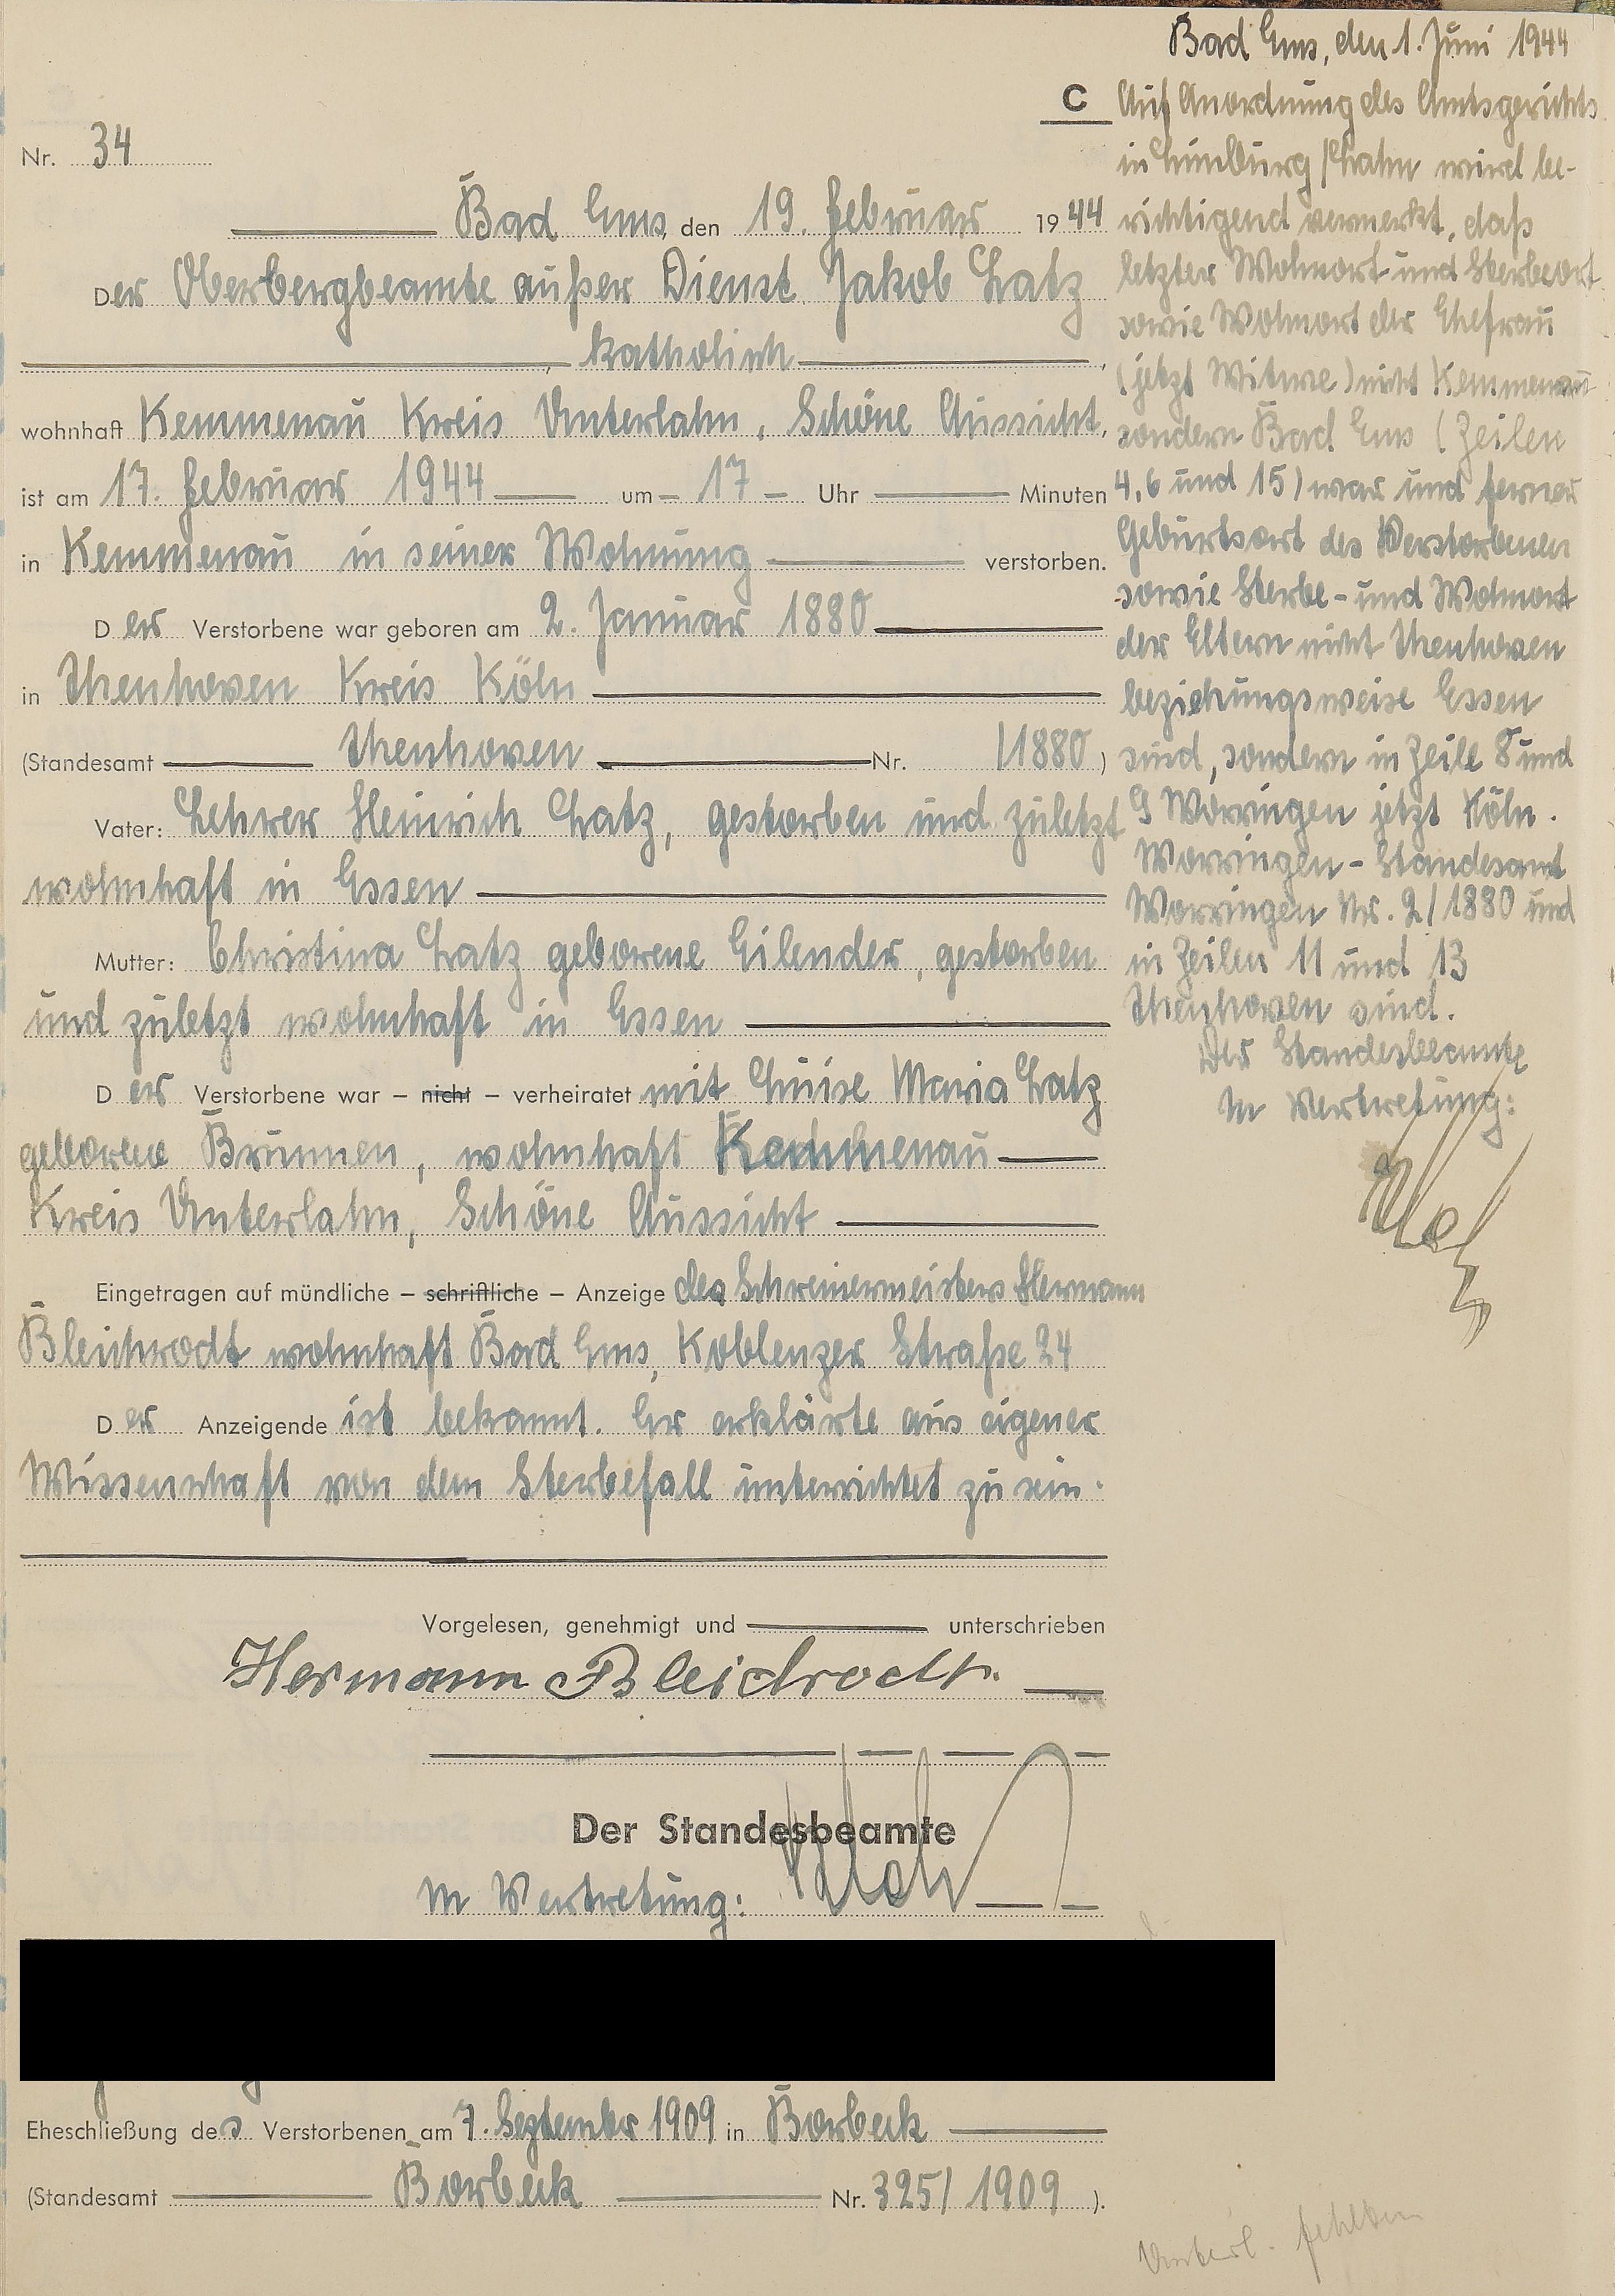 Nr. 34
Bad Ems, den 19. Februar 1944
Der Oberbergbeamte außer Dienst Jakob Latz
, katholisch,
wohnhaft Kemmenau Kreis Unterlahn, Schöne Aussicht,
ist am 17. Februar 1944 um 17 Uhr Minuten
in Kemmenau in seiner Wohnung verstorben.
Der Verstorbene war geboren am 2. Januar 1880
in Thenhoven Kreis Köln
(Standesamt Thenhoven Nr. /1880)
Vater: Lehrer Heinrich Latz, gestorben und zuletzt
wohnhaft in Essen
Mutter: Christina Latz geborene Eilender, gestorben
und zuletzt wohnhaft in Essen
Der Verstorbene war – nicht – verheiratet mit Luise Maria Latz
geborene Brunnen, wohnhaft Kemmenau
Kreis Unterlahn, Schöne Aussicht
Eingetragen auf mündliche – schriftliche – Anzeige des Schreinermeisters Hermann
Bleichrodt wohnhaft Bad Ems, Koblenzer Straße 24
Der Anzeigende ist bekannt. Er erklärte aus eigener
Wissenschaft von dem Sterbefall unterrichtet zu sein.
Vorgelesen, genehmigt und unterschrieben
Hermann Bleichrodt.
Der Standesbeamte
In Vertretung:
Eheschließung des Verstorbenen am 7. September 1909 in Borbeck
(Standesamt Borbeck Nr. 325/1909).
Bad Ems, den 1. Juni 1944
C Auf Anordnung des Amtsgerichts
in Limburg/Lahn wird be-
richtigend vermerkt, daß
letzter Wohnort und Sterbeort
sowie Wohnort der Ehefrau
(jetzt Witwe) nicht Kemmenau
sondern Bad Ems (Zeilen
4, 6 und 15) war und ferner
Geburtsort des Verstorbenen
sowie Sterbe- und Wohnort
der Eltern nicht Thenhoven
beziehungsweise Essen
sind, sondern in Zeile 8 und
9 Worringen jetzt Köln.
Worringen - Standesamt
Worringen Nr. 2/1880 und
in Zeilen 11 und 13
Thenhoven sind.
Der Standesbeamte
In Vertretung:
Unterl. fehlten